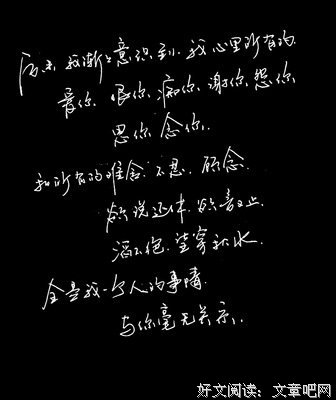 后来我渐渐意识到 我心里所有的
爱你 恨你 痴你 谢你 怨你
思你 念你
和所有的难舍 不忍 顾念
欲说还休 欲言又止
滔不绝 望穿秋水
全是我一个人的事情
与你毫无关系
好文阅读：文章吧网